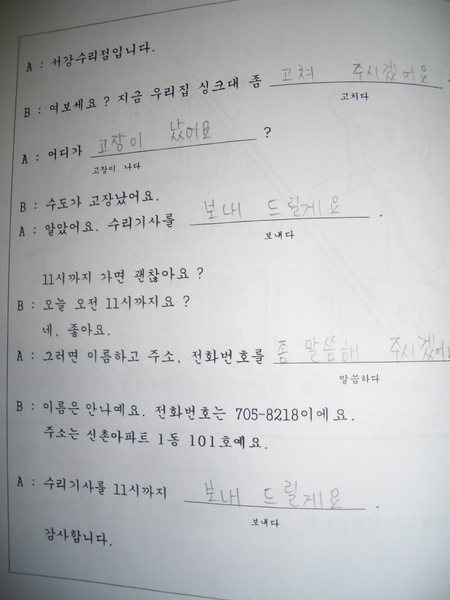 A : 서강수리점입니다.
B : 여보세요 ? 지금 우리집 싱크대 좀 고쳐 주시겠어요 .
고치다
A : 어디가 고장이 났어요 ?
고장이 나다
B : 수도가 고장났어요.
A : 알았어요. 수리기사를 보내 드릴게요 .
보내다
11시까지 가면 괜찮아요 ?
B : 오늘 오전 11시까지요 ?
네, 좋아요.
A : 그러면 이름하고 주소, 전화번호를 좀 말씀해 주시겠어
말씀하다
B : 이름은 안나예요. 전화번호는 705-8218이에요.
주소는 신촌아파트 1동 101호예요.
A : 수리기사를 11시까지 보내 드릴게요 .
보내다
감사합니다.